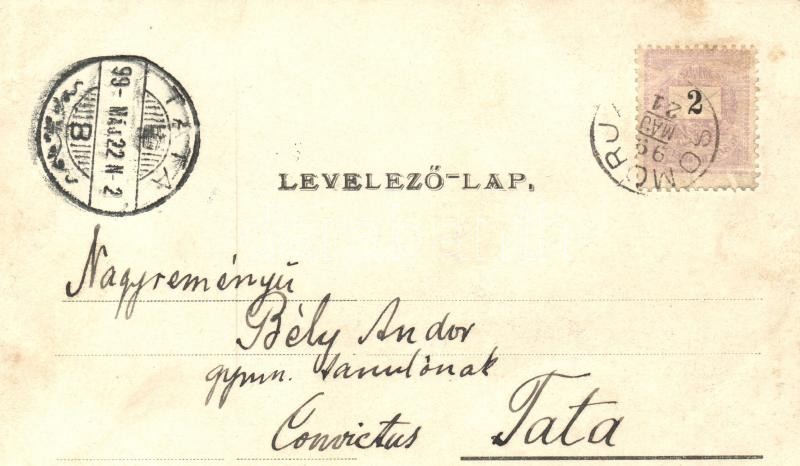 TATA
99- MÁJ 22 N-2
B
2
SOMORU
99 MÁJ 21
LEVELEZŐ-LAP.
Nagyreményű
Bély Andor
gymn. tanulónak
Convictus Tata